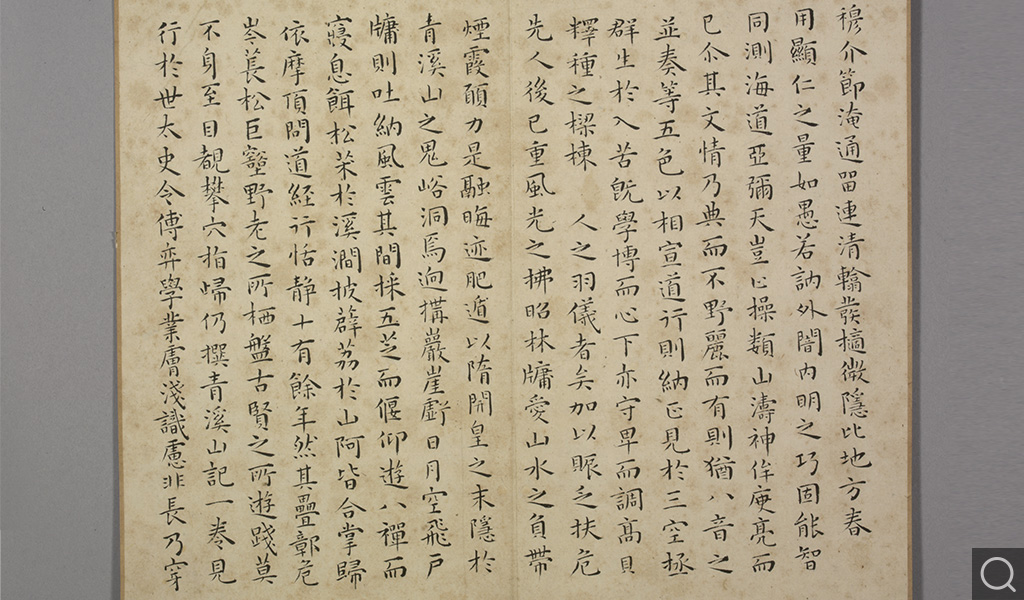 穆介節淹通畱連清輪發摘微隱比地方春
用顯仁之量如愚若訥外闇內明之巧固能智
同測海道亞彌天豈止操類山濤神侔庾亮而
已尒其文情乃典而不野麗而有則猶八音之
並奏等五色以相宣道行則納正見於三空拯
群生於入苦旣學博而心下亦守卑而調髙貝
釋種之樑棟 人之羽儀者矣加以賑乏扶危
先人後已重風光之拂昭林牗愛山水之負帶
煙霞願力是融晦迹肥遁以隋開皇之末隱於
青溪山之鬼峪洞焉逈搆巖崖虧日月空飛戸
牗則吐納風雲其間採五芝而偃仰遊八禪而
寢息餌松茱於溪澗披薜荔於山阿皆合掌歸
依摩頂問道經行恬静十有餘年然其疊鄣危
岑萇松巨壑野老之所栖盤古賢之所遊踐莫
不身至目覩攀穴指歸仍撰青溪山記一卷見
行於世太史令傅弈學業膚淺識慮非長乃穿